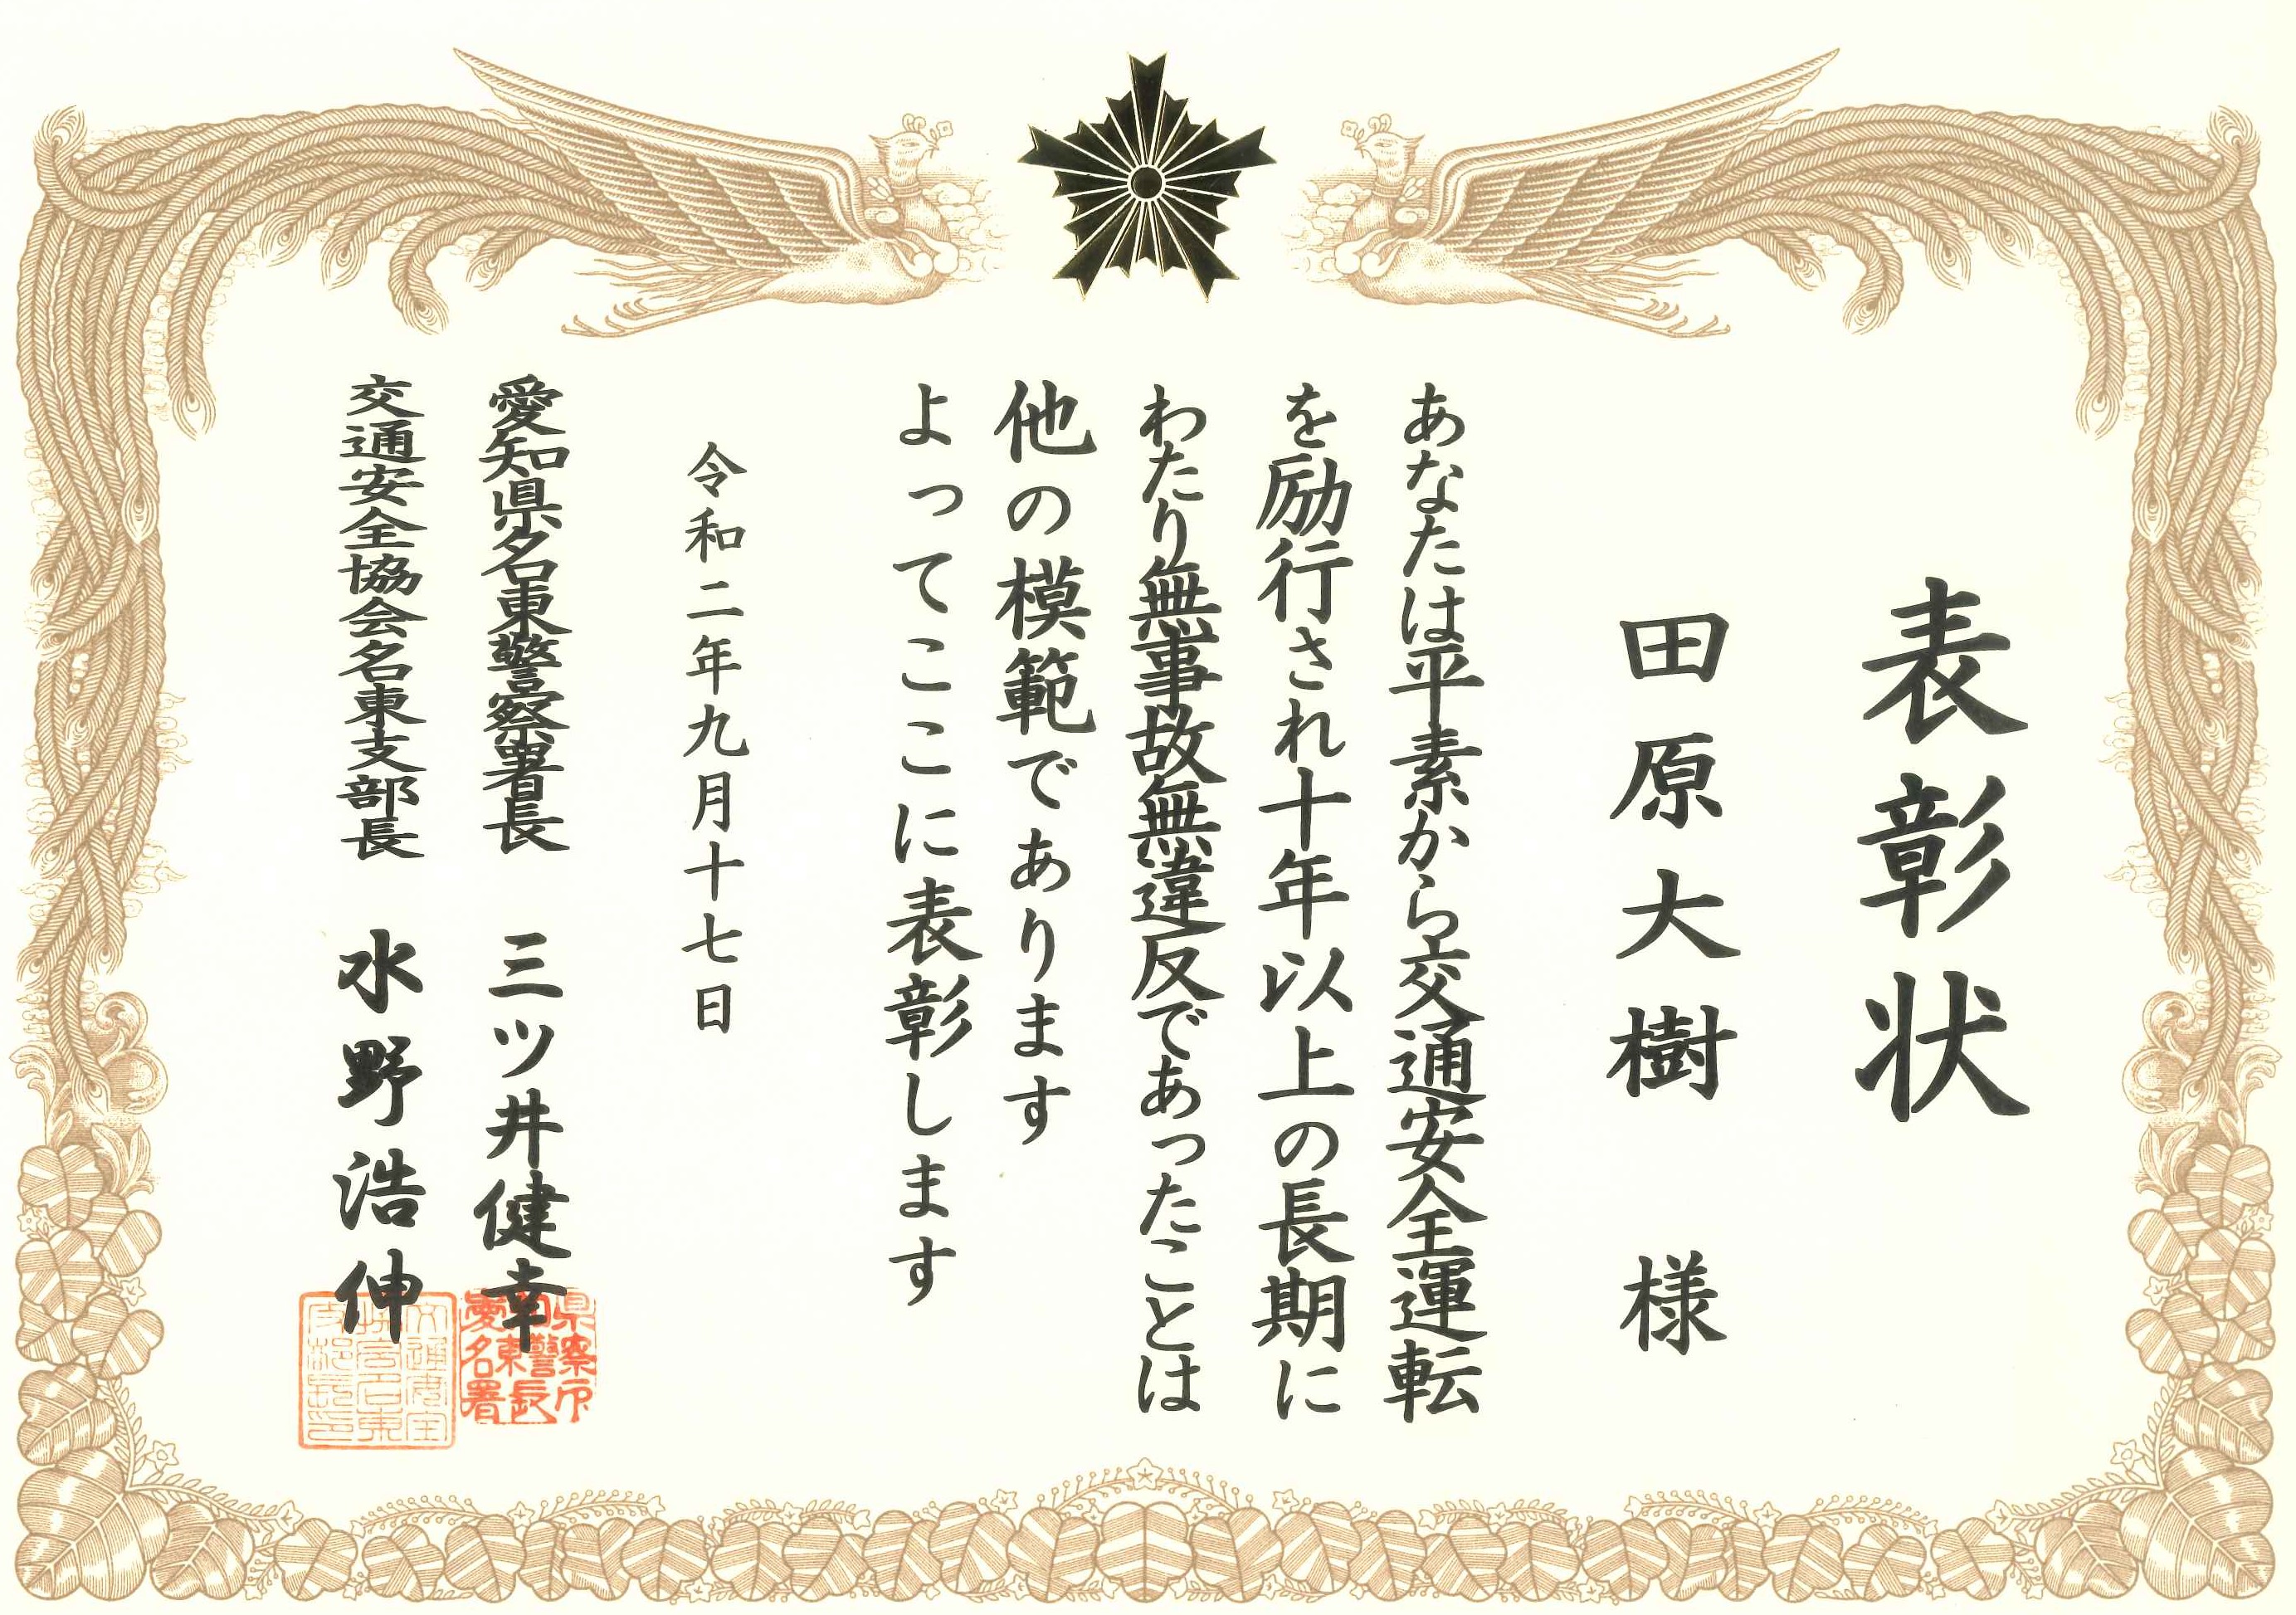 表彰状
田原大樹 様
あなたは平素から交通安全運転
を励行され十年以上の長期に
わたり無事故無違反であったことは
他の模範であります
よってここに表彰します
令和二年九月十七日
愛知県名東警察署長 三ツ井健幸
交通安全協会名東支部長 水野浩伸